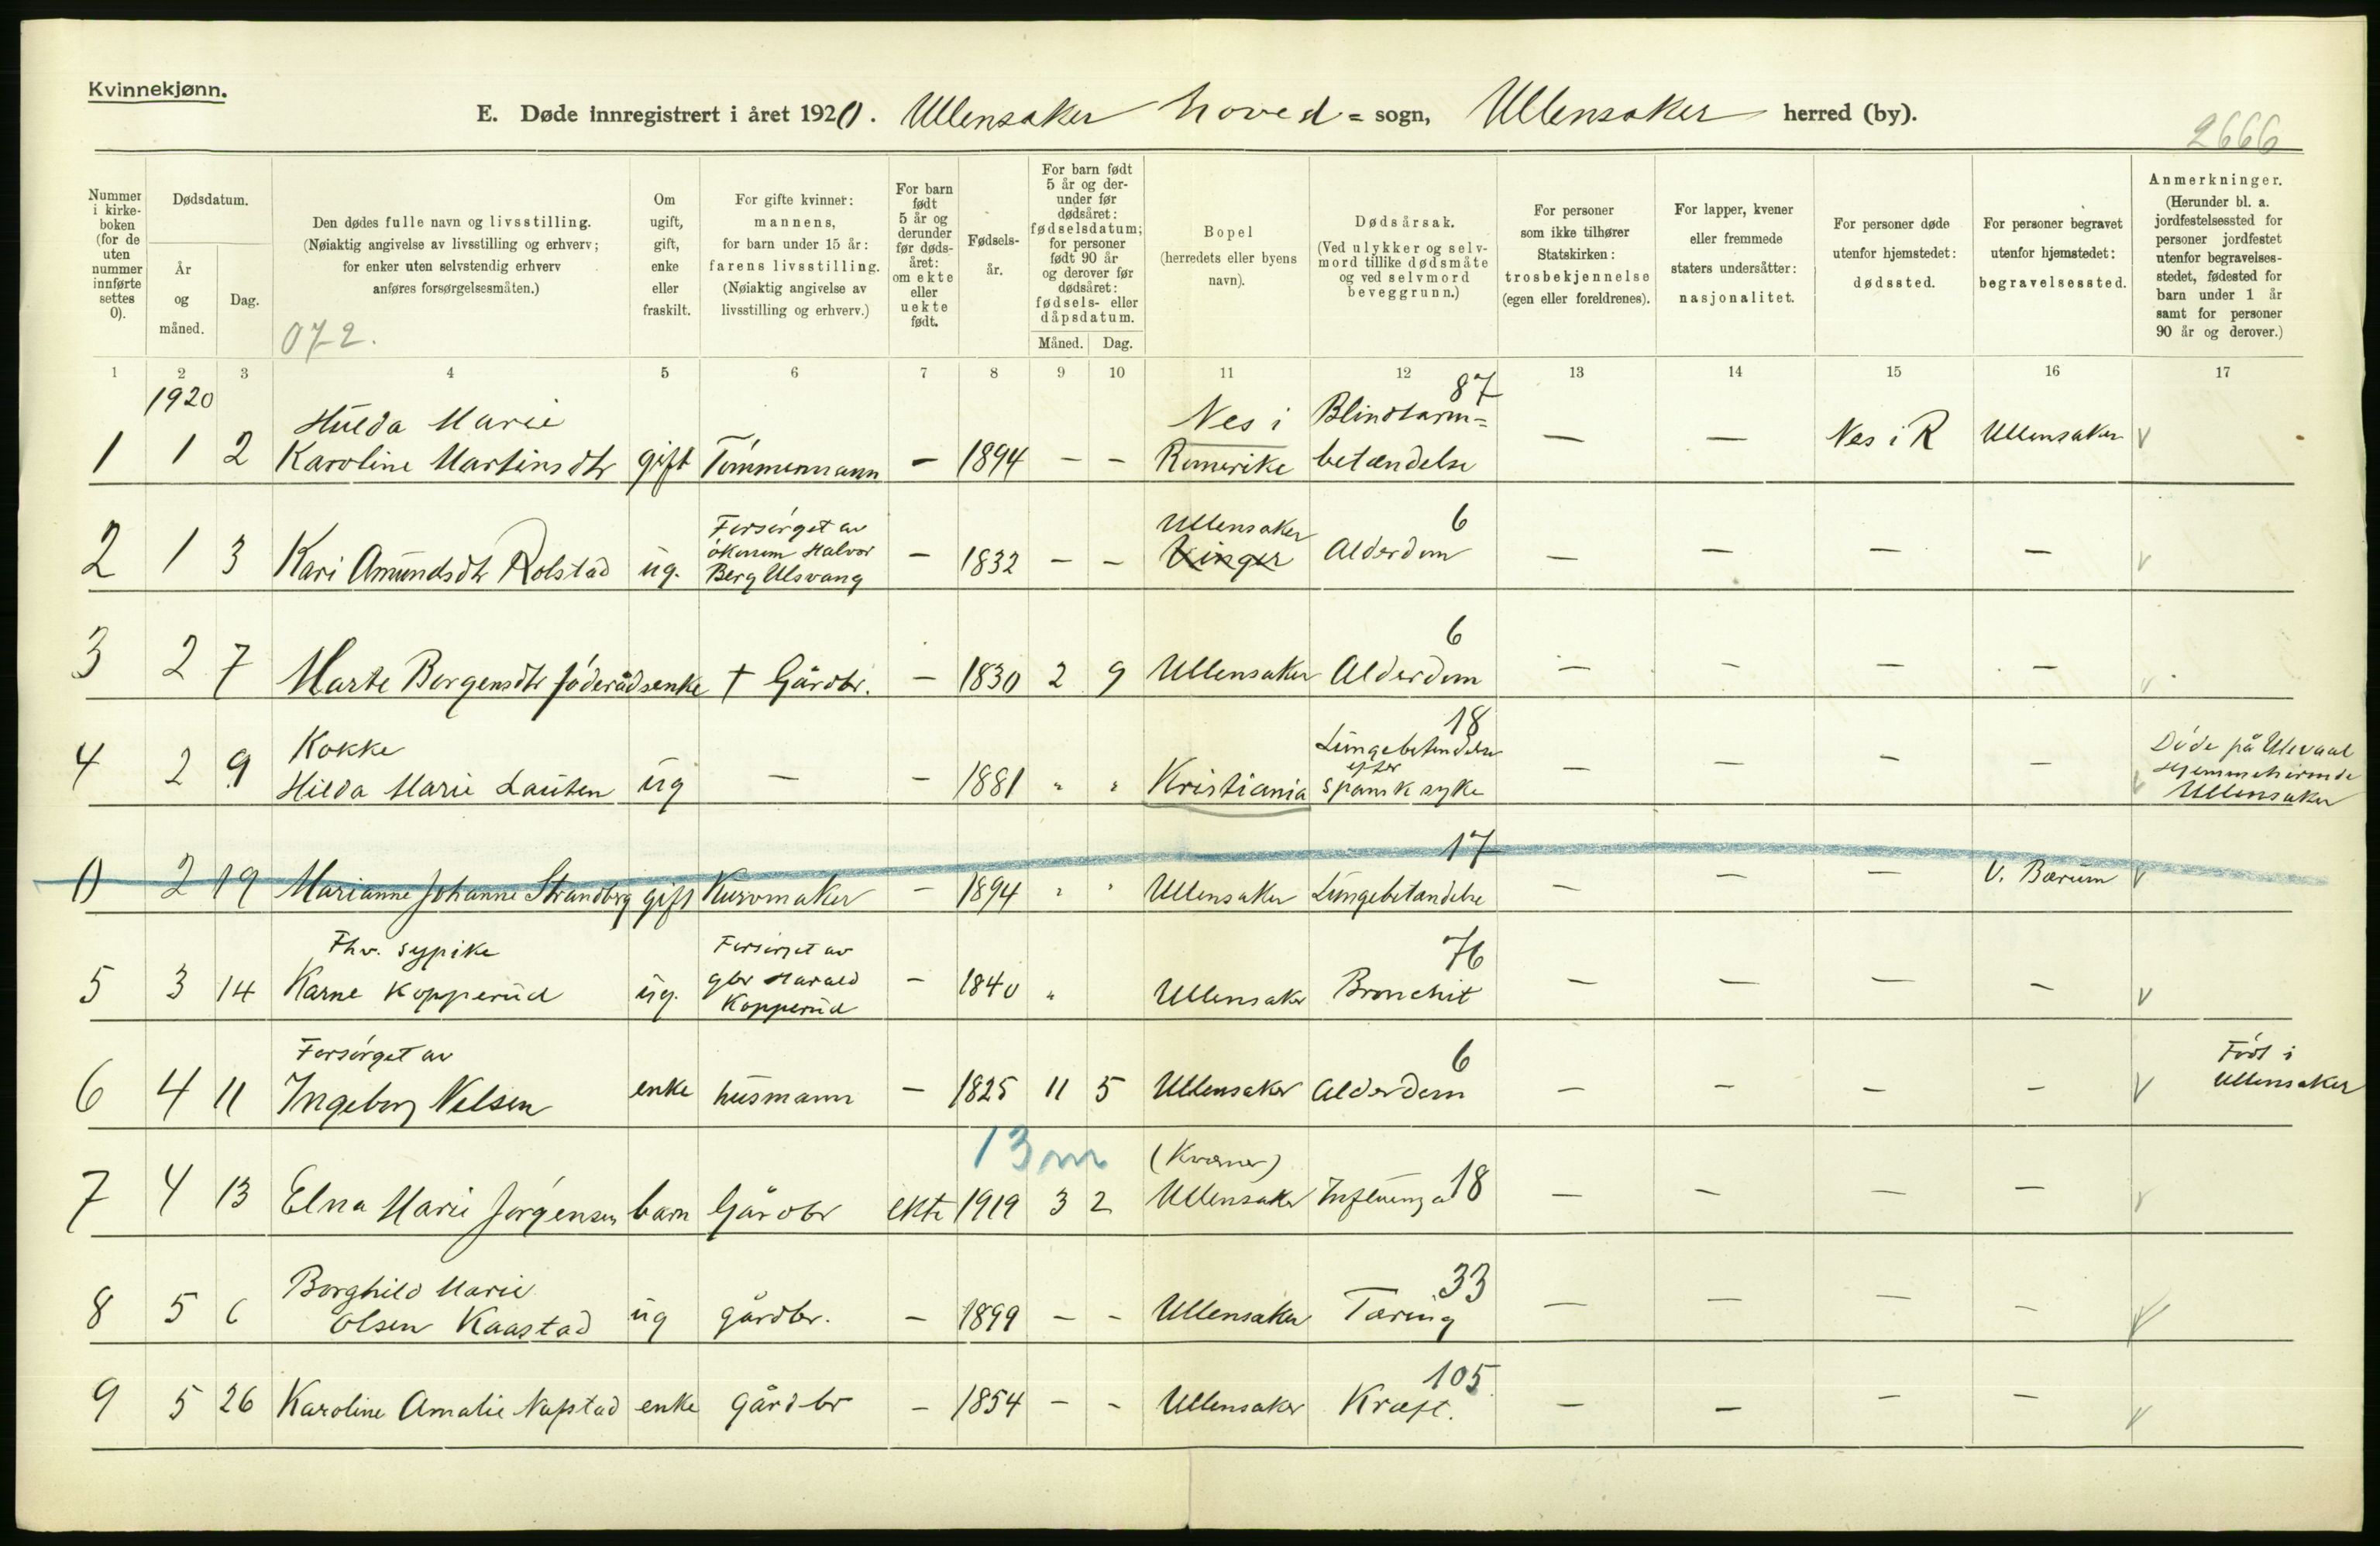 Kvinnekjønn.
E. Døde innregistrert i året 1920. Ullensaker hoved = sogn, Ullensaker herred (by).
2666
Nummer i kirke-boken (for de uten nummer innførte settes 0).
Dødsdatum.
År og måned.
Dag.
Den dødes fulle navn og livsstilling.
(Nøiaktig angivelse av livsstilling og erhverv;
for enker uten selvstendig erhverv
anføres forsørgelsesmåten.)
072.
Om ugift, gift, enke eller fraskilt.
For gifte kvinner:
mannens,
for barn under 15 år:
farens livsstilling.
(Nøiaktig angivelse av
livsstilling og erhverv.)
For barn født 5 år og derunder før døds-året: om ekte eller uekte født.
Fødsels-år.
For barn født 5 år og der-under før dødsåret: fødselsdatum; for personer født 90 år og derover før dødsåret: fødsels- eller dåpsdatum.
Måned. Dag.
Bopel
(herredets eller byens
navn).
Dødsårsak.
(Ved ulykker og selv-
mord tillike dødsmåte
og ved selvmord
beveggrunn.)
For personer
som ikke tilhører
Statskirken:
trosbekjennelse
(egen eller foreldrenes).
For lapper, kvener
eller fremmede
staters undersåtter:
nasjonalitet.
For personer døde
utenfor hjemstedet:
dødssted.
For personer begravet
utenfor hjemstedet:
begravelsessted.
Anmerkninger.
(Herunder bl. a.
jordfestelsessted for
personer jordfestet
utenfor begravelses-
stedet, fødested for
barn under 1 år
samt for personer
90 år og derover.)
1 2 3 4 5 6 7 8 9 10 11 12 13 14 15 16 17
1920
Hulda Marie Nes i Blindtarm= 87
1 1 2 Karoline Martinsdtr gift Tömmermann – 1894 – – Romerike betændelse — — Nes i R Ullensaker V
Forsörget av Ullensaker 6
ökonom Halvor
2 1 3 Kari Amundsdtr Rolstad ug. Berg Ulsvang – 1832 – – Vinger Alderdom — — — — V
6
3 2 7 Marte Borgensdtr föderådsenke † Gårdbr. – 1830 2 9 Ullensaker Alderdom — — — — V
Kokke Lungebetendelse 18 efter
4 2 9 Hilda Marie Lauten ug – – 1881 " " Kristiania spansk syke — — — — V
Döde på Ulevaal
Hjemmehörende
Ullensaker
17
0 2 19 Marianne Johanne Strandberg gift Kurvmaker – 1894 " " Ullensaker Lungebetændelse — — — V. Bærum V
Fhv. sypike Forsörget av 76
gbr Harald
5 3 14 Karne Kopperud ug. Kopperud – 1840 " Ullensaker Bronchit — — — — V
Forsörget av 6 Född i
6 4 11 Ingeborg Nelsen enke husmann – 1825 11 5 Ullensaker Alderdom — — — — V Ullensaker
13 m (Kværner)
7 4 13 Elna Marie Jörgensen barn Gårdbr ekte 1919 3 2 Ullensaker Influenza 18 — — — — V
Borghild Marie 33
8 5 6 Olsen Kaastad ug gårdbr. – 1899 – – Ullensaker Tæring — — — — V
105
9 5 26 Karoline Amalie Nafstad enke gårdbr – 1854 – – Ullensaker Kræft. — — — — V